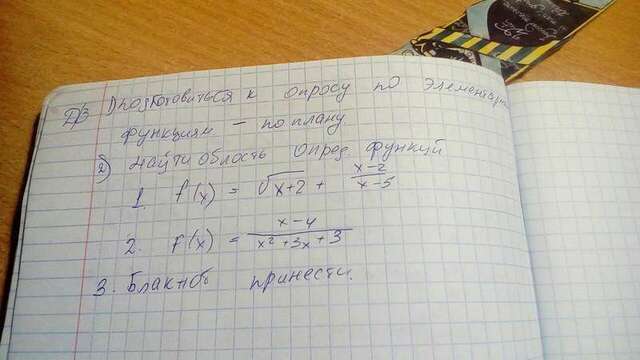 Д/З 1) подготовиться к опросу по элементарн
функциям – по плану
2) найти область опред функций
1. f(x) = √x+2 + x-2/x-5
2. f(x) = x-4/x²+3x+3
3. Блакноб принести.